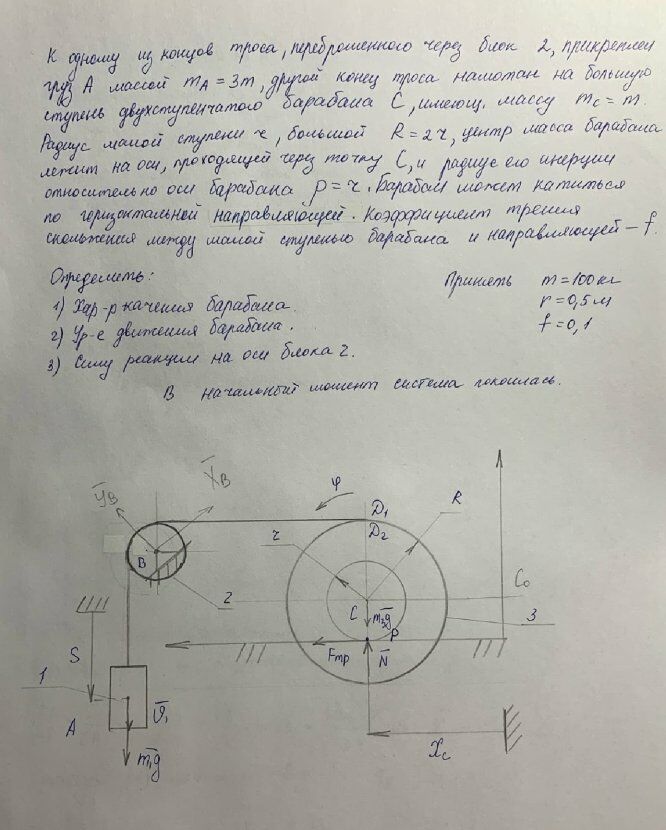 К одному из концов троса, переброшенного через блок 2, прикреплен
груз А массой mA = 3m, другой конец троса намотан на большую
ступень двухступенчатого барабана С, имеющ. массу mC = m.
Радиус малой ступени r, большой R = 2r, центр масса барабана
лежит на оси, проходящей через точку С, и радиус его инерции
относительно оси барабана ρ = r. Барабан может катиться
по горизонтальной направляющей. Коэффициент трения
скольжения между малой ступенью барабана и направляющей – f.
Определить:
1) Хар-р качения барабана.
2) Ур-е движения барабана.
3) Силу реакции на оси блока 2.
Принять m = 100 кг
r = 0,5 м
f = 0,1
В начальный момент система покоилась.
YB
XB
φ
D1
D2
R
r
B
2
C
C0
m3g
P
3
S
Fтр
N
1
A
V1
XC
m1g